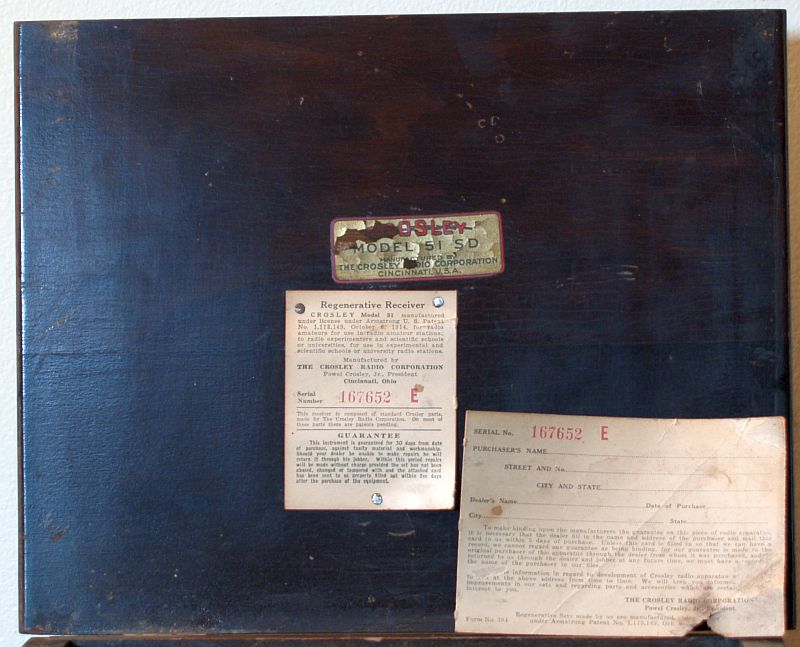 OSLEY
MODEL 51 SD
MANUFACTURED BY
THE CROSLEY RADIO CORPORATION
CINCINNATI, U.S.A.
Regenerative Receiver
CROSLEY Model 51 manufactured
under license under Armstrong U. S. Patent
No. 1,113,149, October 6, 1914, for radio
amateurs for use in radio amateur stations;
to radio experimenters and scientific schools
or universities, for use in experimental and
scientific schools or university radio stations.
Manufactured by
THE CROSLEY RADIO CORPORATION
Powel Crosley, Jr., President
Cincinnati, Ohio
Serial
Number 167652 E
This receiver is composed of standard Crosley parts,
made by The Crosley Radio Corporation. On most of
these parts there are patents pending.
GUARANTEE
This instrument is guaranteed for 30 days from date
of purchase, against faulty material and workmanship.
Should your dealer be unable to make repairs he will
return it through his jobber. Within this period repairs
will be made without charge provided the set has not been
abused, changed or tampered with and the attached card
has been sent to us properly filled out within five days
after the purchase of the equipment.
SERIAL No. 167652 E
PURCHASER'S NAME
STREET AND No.
CITY AND STATE
Dealer's Name
Date of Purchase
City
State
To make binding upon the manufacturers the guarantee on this piece of radio apparatus
it is necessary that the dealer fill in the name and address of the purchaser and mail this
card to us within 5 days of purchase. Unless this card is filled in so that we can have a
record, we cannot regard our guarantee as being binding, for our guarantee is made to the
original purchaser of this apparatus through the dealer from whom it was purchased, and
returned to us through the dealer and jobber at any future time, we must have a record
the name of the purchaser in our files.
information in regard to development of Crosley radio apparatus
to at the above address from time to time. We will keep you informed
improvements in our sets and regarding parts and accessories which are certain
interest to you.
THE CROSLEY RADIO CORPORATION
Powel Crosley, Jr., President.
Regenerative Sets made by us are manufactured
Form No. under Armstrong Patent No. 1,113,149, Oct.